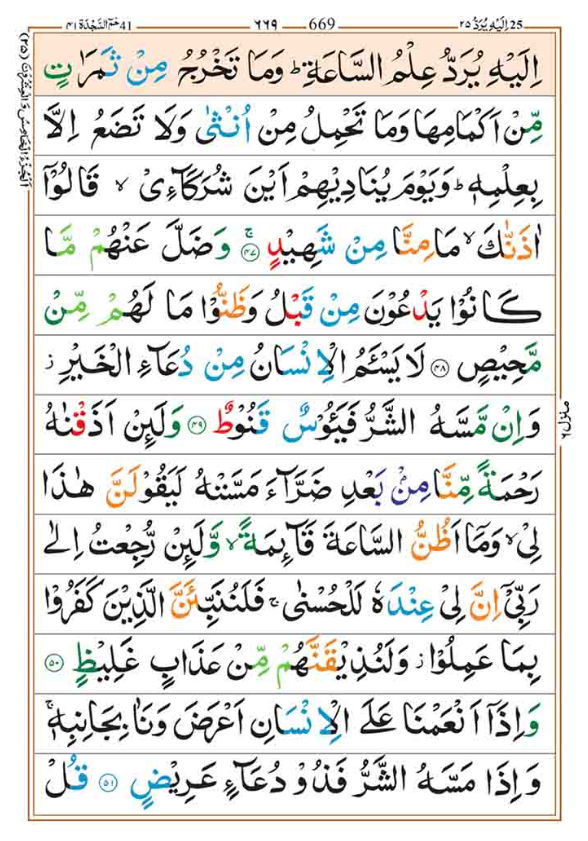 25 اِلَيْهِ يُرَدُّ ٢٥
669 ٦٦٩
41 حٰمٓ السَّجْدَة ٤١
اِلَيْهِ يُرَدُّ عِلْمُ السَّاعَةِ ؕ وَمَا تَخْرُجُ مِنْ ثَمَرٰتٍ
مِّنْ اَكْمَامِهَا وَمَا تَحْمِلُ مِنْ اُنْثٰى وَلَا تَضَعُ اِلَّا
بِعِلْمِهٖ ؕ وَيَوْمَ يُنَادِيْهِمْ اَيْنَ شُرَكَآءِىْ ۙ قَالُوْٓا
اٰذَنّٰكَ ۙ مَا مِنَّا مِنْ شَهِيْدٍ ۚ ﴿٤٧﴾ وَضَلَّ عَنْهُمْ مَّا
كَانُوْا يَدْعُوْنَ مِنْ قَبْلُ وَظَنُّوْا مَا لَهُمْ مِّنْ
مَّحِيْصٍ ﴿٤٨﴾ لَا يَسْـَٔمُ الْاِنْسَانُ مِنْ دُعَآءِ الْخَيْرِ ز
وَاِنْ مَّسَّهُ الشَّرُّ فَيَـُٔوْسٌ قَنُوْطٌ ﴿٤٩﴾ وَلَئِنْ اَذَقْنٰهُ
رَحْمَةً مِّنَّا مِنْۢ بَعْدِ ضَرَّآءَ مَسَّتْهُ لَيَقُوْلَنَّ هٰذَا
لِىْ ۙ وَمَآ اَظُنُّ السَّاعَةَ قَآئِمَةً ۙ وَّلَئِنْ رُّجِعْتُ اِلٰى
رَبِّىْٓ اِنَّ لِىْ عِنْدَهٗ لَلْحُسْنٰى ۚ فَلَنُنَبِّئَنَّ الَّذِيْنَ كَفَرُوْا
بِمَا عَمِلُوْا ز وَلَنُذِيْقَنَّهُمْ مِّنْ عَذَابٍ غَلِيْظٍ ﴿٥٠﴾
وَاِذَآ اَنْعَمْنَا عَلَى الْاِنْسَانِ اَعْرَضَ وَنَاٰ بِجَانِبِهٖ ۚ
وَاِذَا مَسَّهُ الشَّرُّ فَذُوْ دُعَآءٍ عَرِيْضٍ ﴿٥١﴾ قُلْ
اَلْجُزْءُ الْخَامِسُ وَ الْعِشْرُوْنَ (٢٥)
منزل ٦